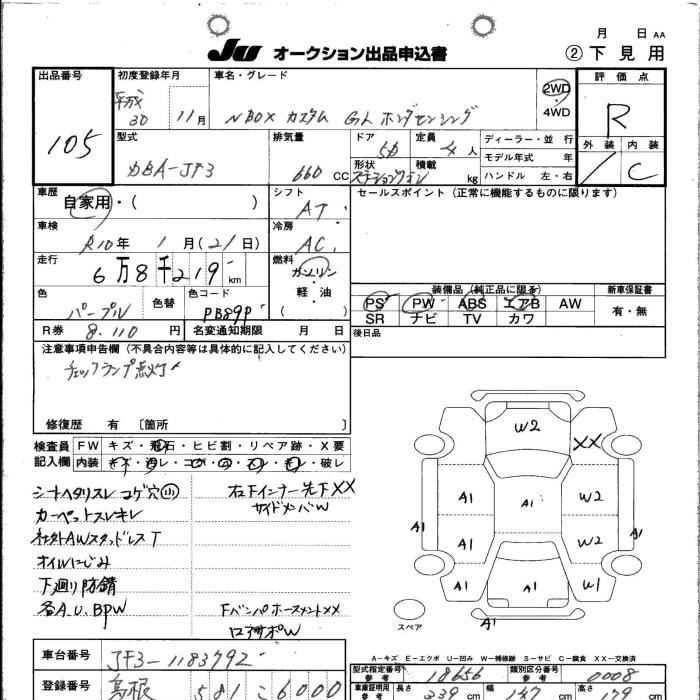 JU オークション出品申込書
月 日 AA
② 下見用
出品番号
105
初度登録年月
平成 30 11月
車名・グレード
NBOX カスタム GL ホンダセンシング
2WD
4WD
評価点
R
外装 内装
C
型式
DBA-JF3
排気量
660 CC
ドア
5D
定員
4 人
形状
ステーションワゴン
積載
kg
ディーラー・並行
モデル年式 年
ハンドル 左・右
車歴
自家用・( )
シフト
AT
セールスポイント (正常に機能するものに限ります)
車検
R10年 1月(21日)
冷房
AC
走行
6万8千219 km
燃料
ガソリン
軽・油
( )
色
パープル
色替
色コード
PB89P
装備品 (純正品に限る)
新車保証書
PS PW ABS エアB AW
有・無
SR ナビ TV カワ
R券 8.110 円
名変通知期限 月 日
後日品
注意事項申告欄 (不具合内容等は具体的に記入してください)
チェックランプ点灯
修復歴 有 〔箇所 〕
検査員 FW キズ・飛石・ヒビ割・リペア跡・X要
記入欄 内装 キズ・汚レ・コゲ・穴・スレ・キレ・破レ
シートヘタリスレ コゲ穴小
カーペットスレキレ
社外AWスタッドレスT
オイルにじみ
下廻り防錆
各A.U.BPW
右下インナー先下XX
サイドメンバW
FバンパホースメントXX
ロアサポW
W2
XX
A1
A1
W2
A1
A1
A1
W2
A1
A1
A1
W1
スペア
A1
A-キズ E-エクボ U-凹み W-補修跡 S-サビ C-腐食 XX-交換済
車台番号
JF3-1183792
型式指定番号
参考
18656
類別区分番号
参考
0008
登録番号
島根 581 こ 6000
車庫証明用
参考
長さ
339 cm
幅
147 cm
高さ
179 cm